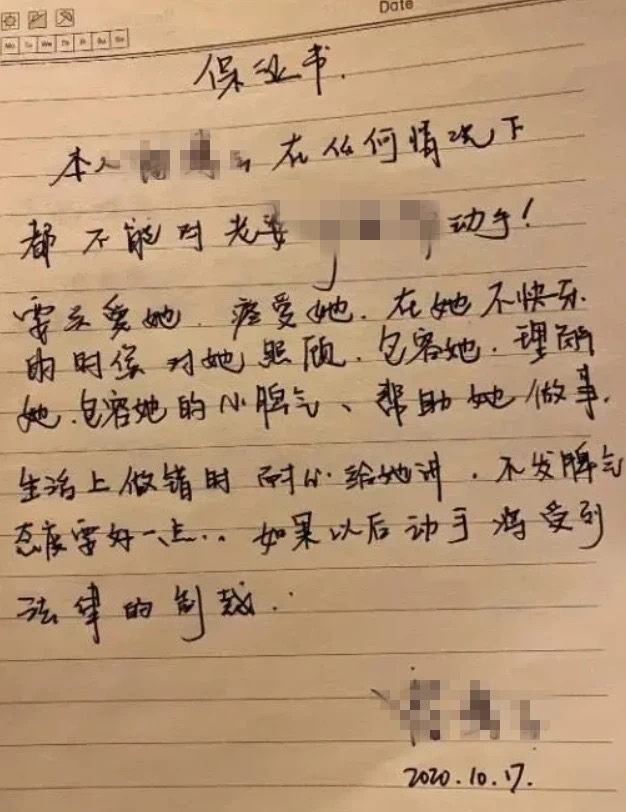 Date
Mo Tu We Th Fr Sa Su
保证书.
本人 在任何情况下
都不能对老婆 动手!
要关爱她.疼爱她.在她不快乐
的时候对她照顾.包容她.理解
她.包容她的小脾气、帮助她做事.
生活上做错时耐心给她讲.不发脾气
态度要好一点..如果以后动手将受到
法律的制裁..
2020.10.17.